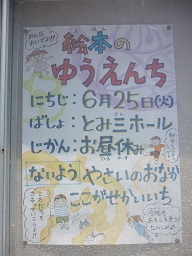 みんな
おいでよ!!
絵本の
ゆうえんち
にちじ:6月25日(火)
ばしょ:とみ三ホール
じかん:お昼休み
ないよう:やさいのおなか
ここがせかいいち